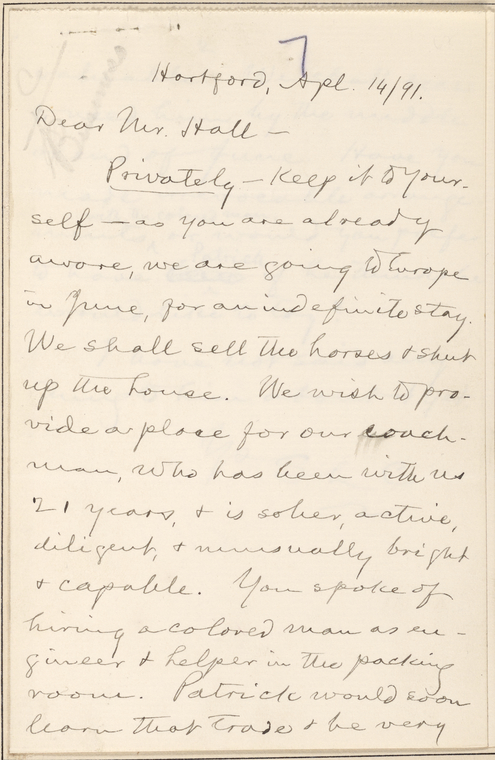 7
Hartford, Apl. 14/91.
Dear Mr. Hall —
Privately — Keep it to your-
self — as you are already
aware, we are going to Europe
in June, for an indefinite stay.
We shall sell the horses & shut
up the house. We wish to pro-
vide a place for our coach-
man, who has been with us
21 years, & is sober, active,
diligent, & unusually bright
& capable. You spoke of
hiring a colored man as en-
gineer & helper in the packing
room. Patrick would soon
learn that trade & be very